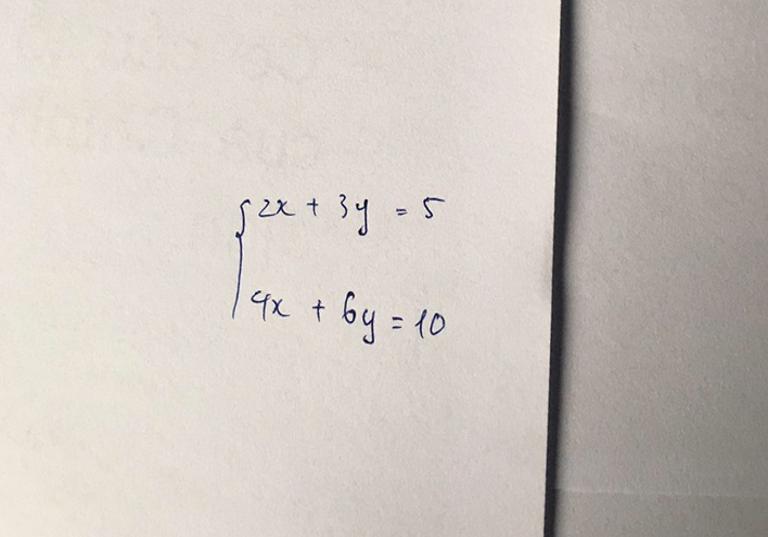 2x + 3y = 5
4x + 6y = 10